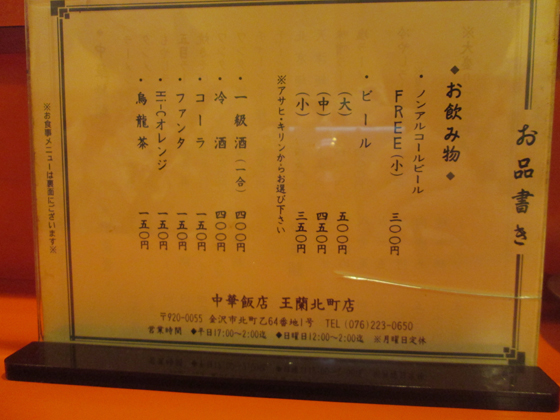 お品書き
◆お飲み物◆
・ノンアルコールビール
FREE(小) 三〇〇円
・ビール
(大) 五〇〇円
(中) 四五〇円
(小) 三五〇円
※アサヒ・キリンからお選び下さい
・一級酒(一合) 四〇〇円
・冷酒 四〇〇円
・コーラ 一五〇円
・ファンタ 一五〇円
・Hi-Cオレンジ 一五〇円
・烏龍茶 一五〇円
※お食事メニューは裏面にございます※
中華飯店 王蘭北町店
〒920-0055 金沢市北町乙64番地1号 TEL (076)223-0650
営業時間 ◆平日17:00~2:00迄 ◆日曜日12:00~2:00迄 ※月曜日定休